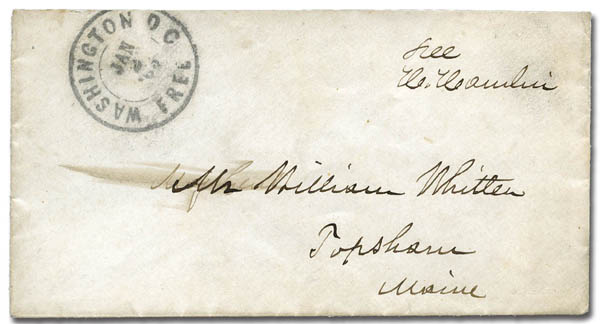 WASHINGTON D.C.
JAN
FREE
Free
H. Hamlin
William Whitten
Topsham
Maine